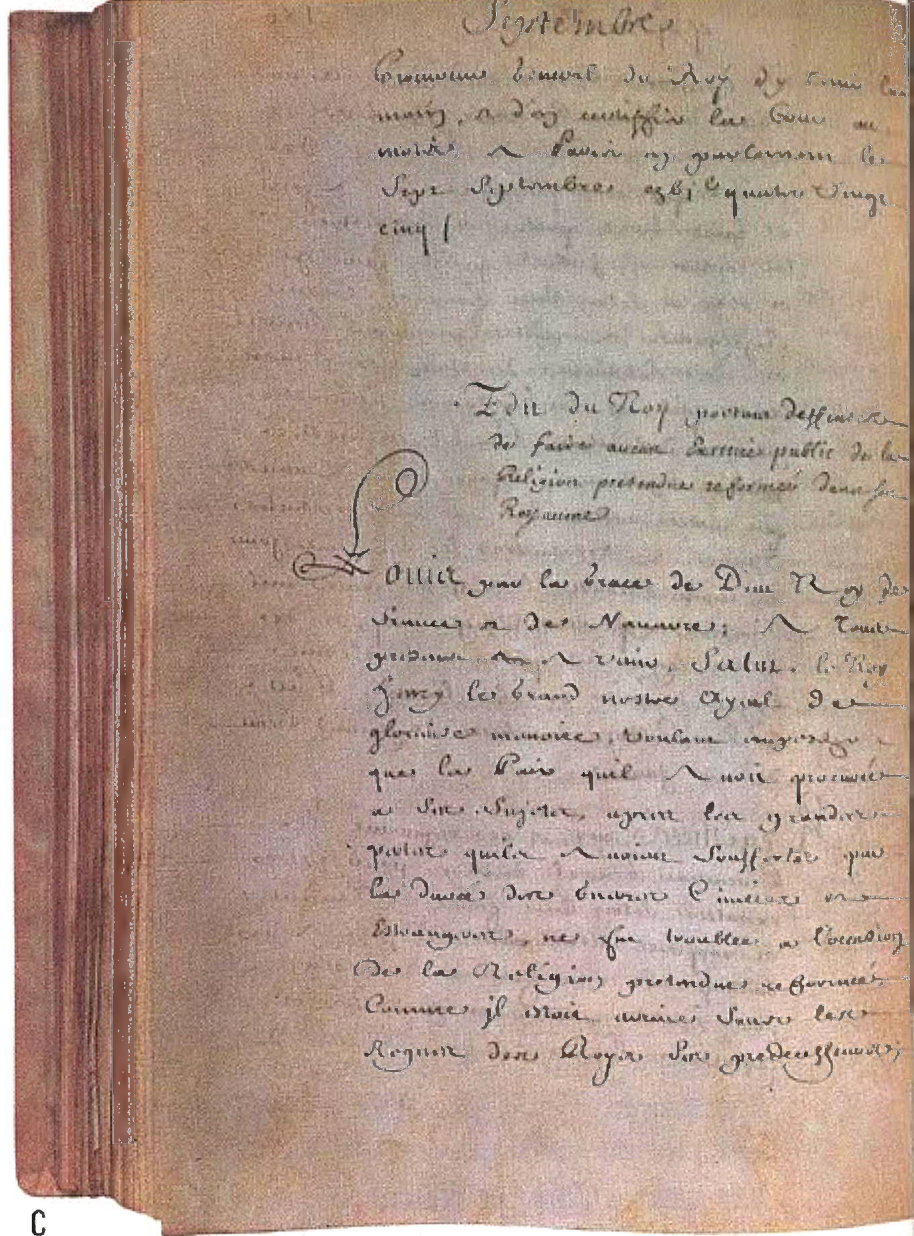 Septembre
Procureur General du Roy d'y tenir la
main, et d'en certiffier la Cour au
mois A Paris en parlement le
Sept Septembre quatre Vingt
cinq
Edit du Roy portant deffenses
de faire aucun Exercice public de la
Religion pretendue reformée dans son
Royaume
Louis par la grace de Dieu Roy de
france et de Navarre; A Tous
presens et A venir, Salut. le Roy
henry le Grand nostre Ayeul de
glorieuse memoire, voulant empescher
que la Paix quil Avoit procurée
a Ses Sujets, apres les grandes
pertes quils Avoient Souffertes par
la durée des Guerres Civiles et
Estrangeres, ne fut troublée a l'occasion
De la Religion pretendue reformée
Comme jl estoit arrivé Sous les
Regnes des Roys Ses predecesseurs,
C